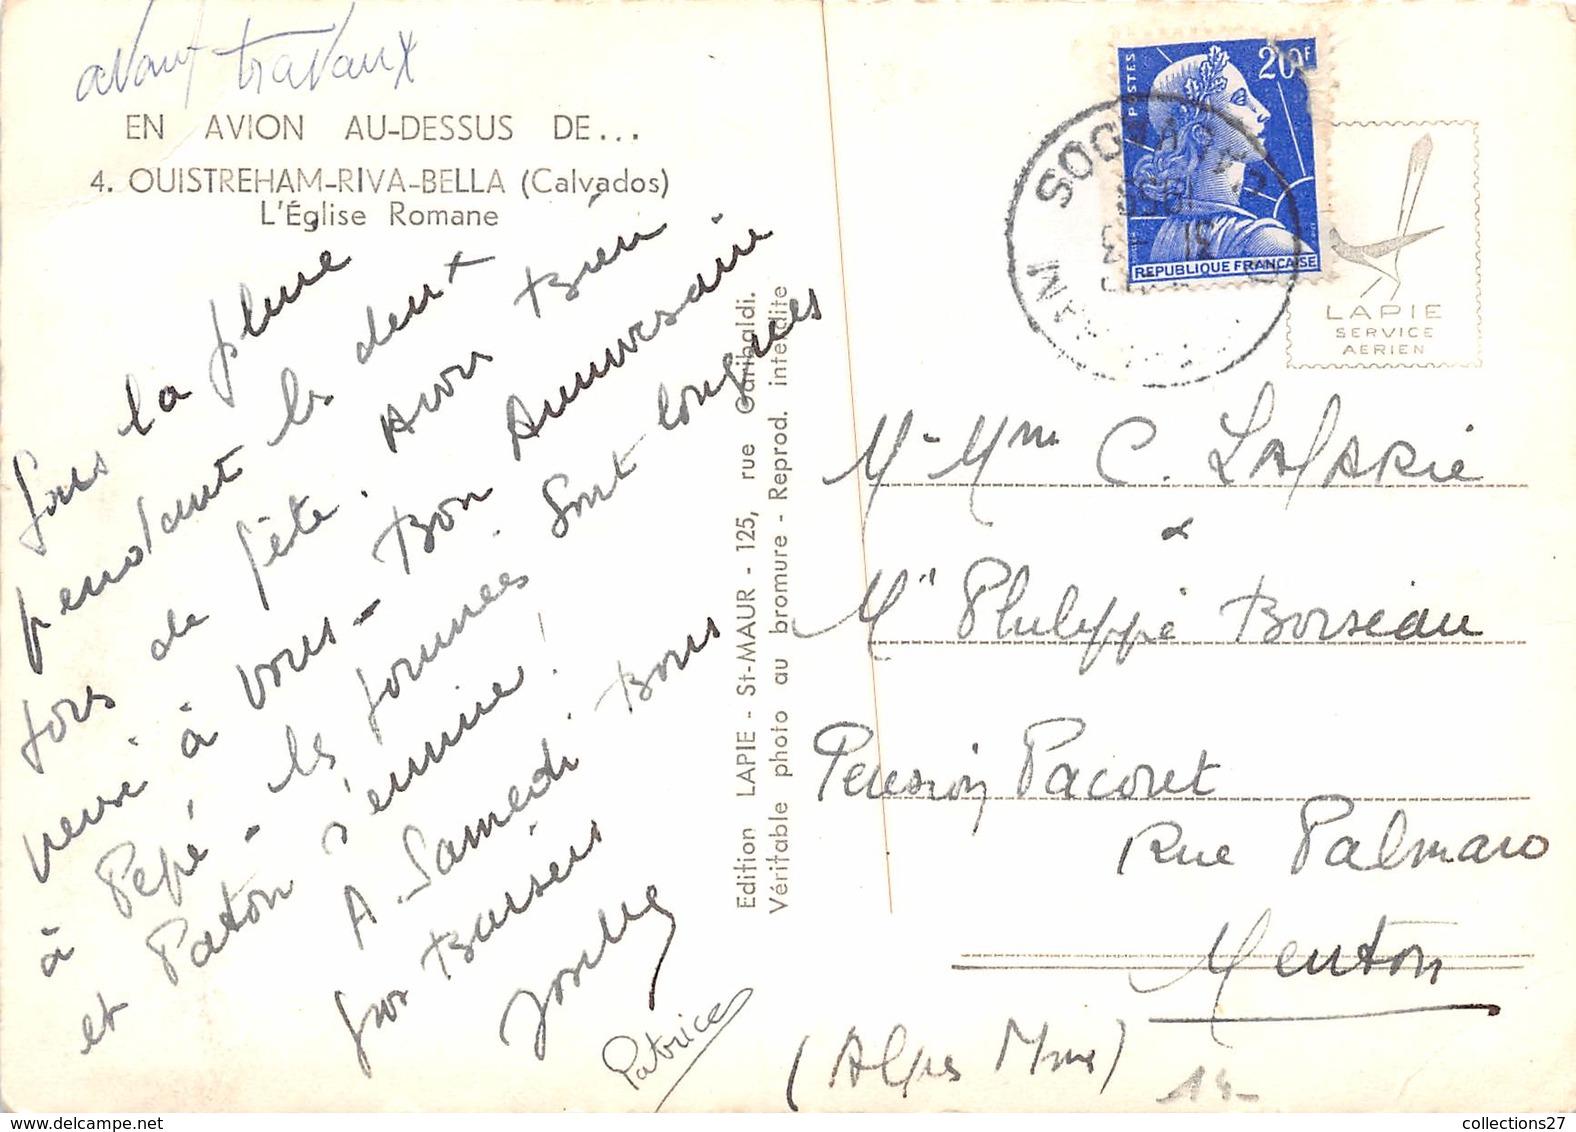 avant travaux
EN AVION AU-DESSUS DE...
4. OUISTREHAM-RIVA-BELLA (Calvados)
L'Église Romane
Sous la pluie
pendant les deux
jours de fête. Avons Bien
pensé à vous - Bon Anniversaire
à Pépé - les journées sont longues
et Paton s'ennuie !
A Samedi. Bons
gros Baisers
Patrice
Edition LAPIE - St-MAUR - 125, rue Garibaldi.
Véritable photo au bromure - Reprod. interdite
POSTES
20F
REPUBLIQUE FRANÇAISE
CALVADOS
31 - 3
LAPIE
SERVICE
AERIEN
Mr Mme C. Lafarie
&
Mr Philippe Boiseau
Pension Pacoret
Rue Palmaro
Menton
(Alpes Mmes)
14-
collections27